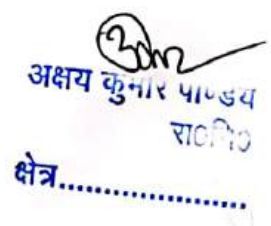 अक्षय कुमार पाण्डय
रा०नि०
क्षेत्र......................